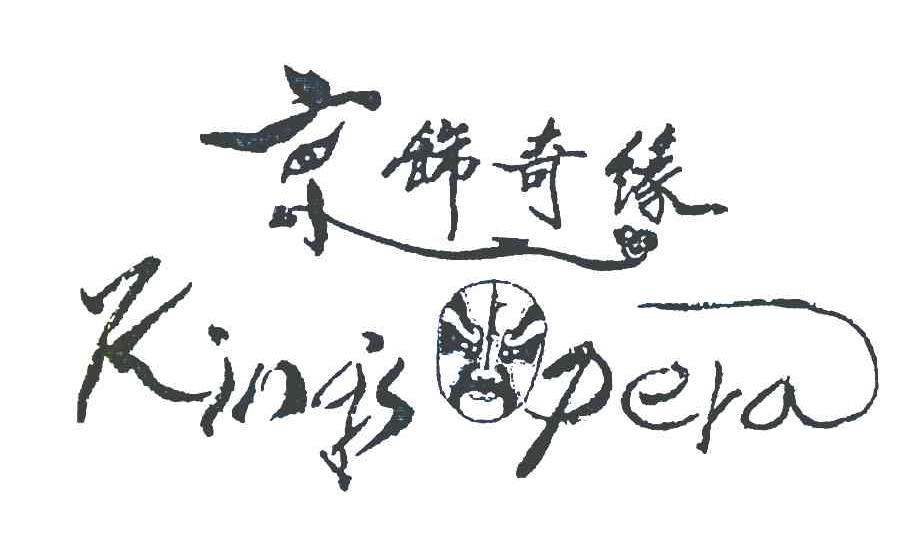 京饰奇缘
King's Opera